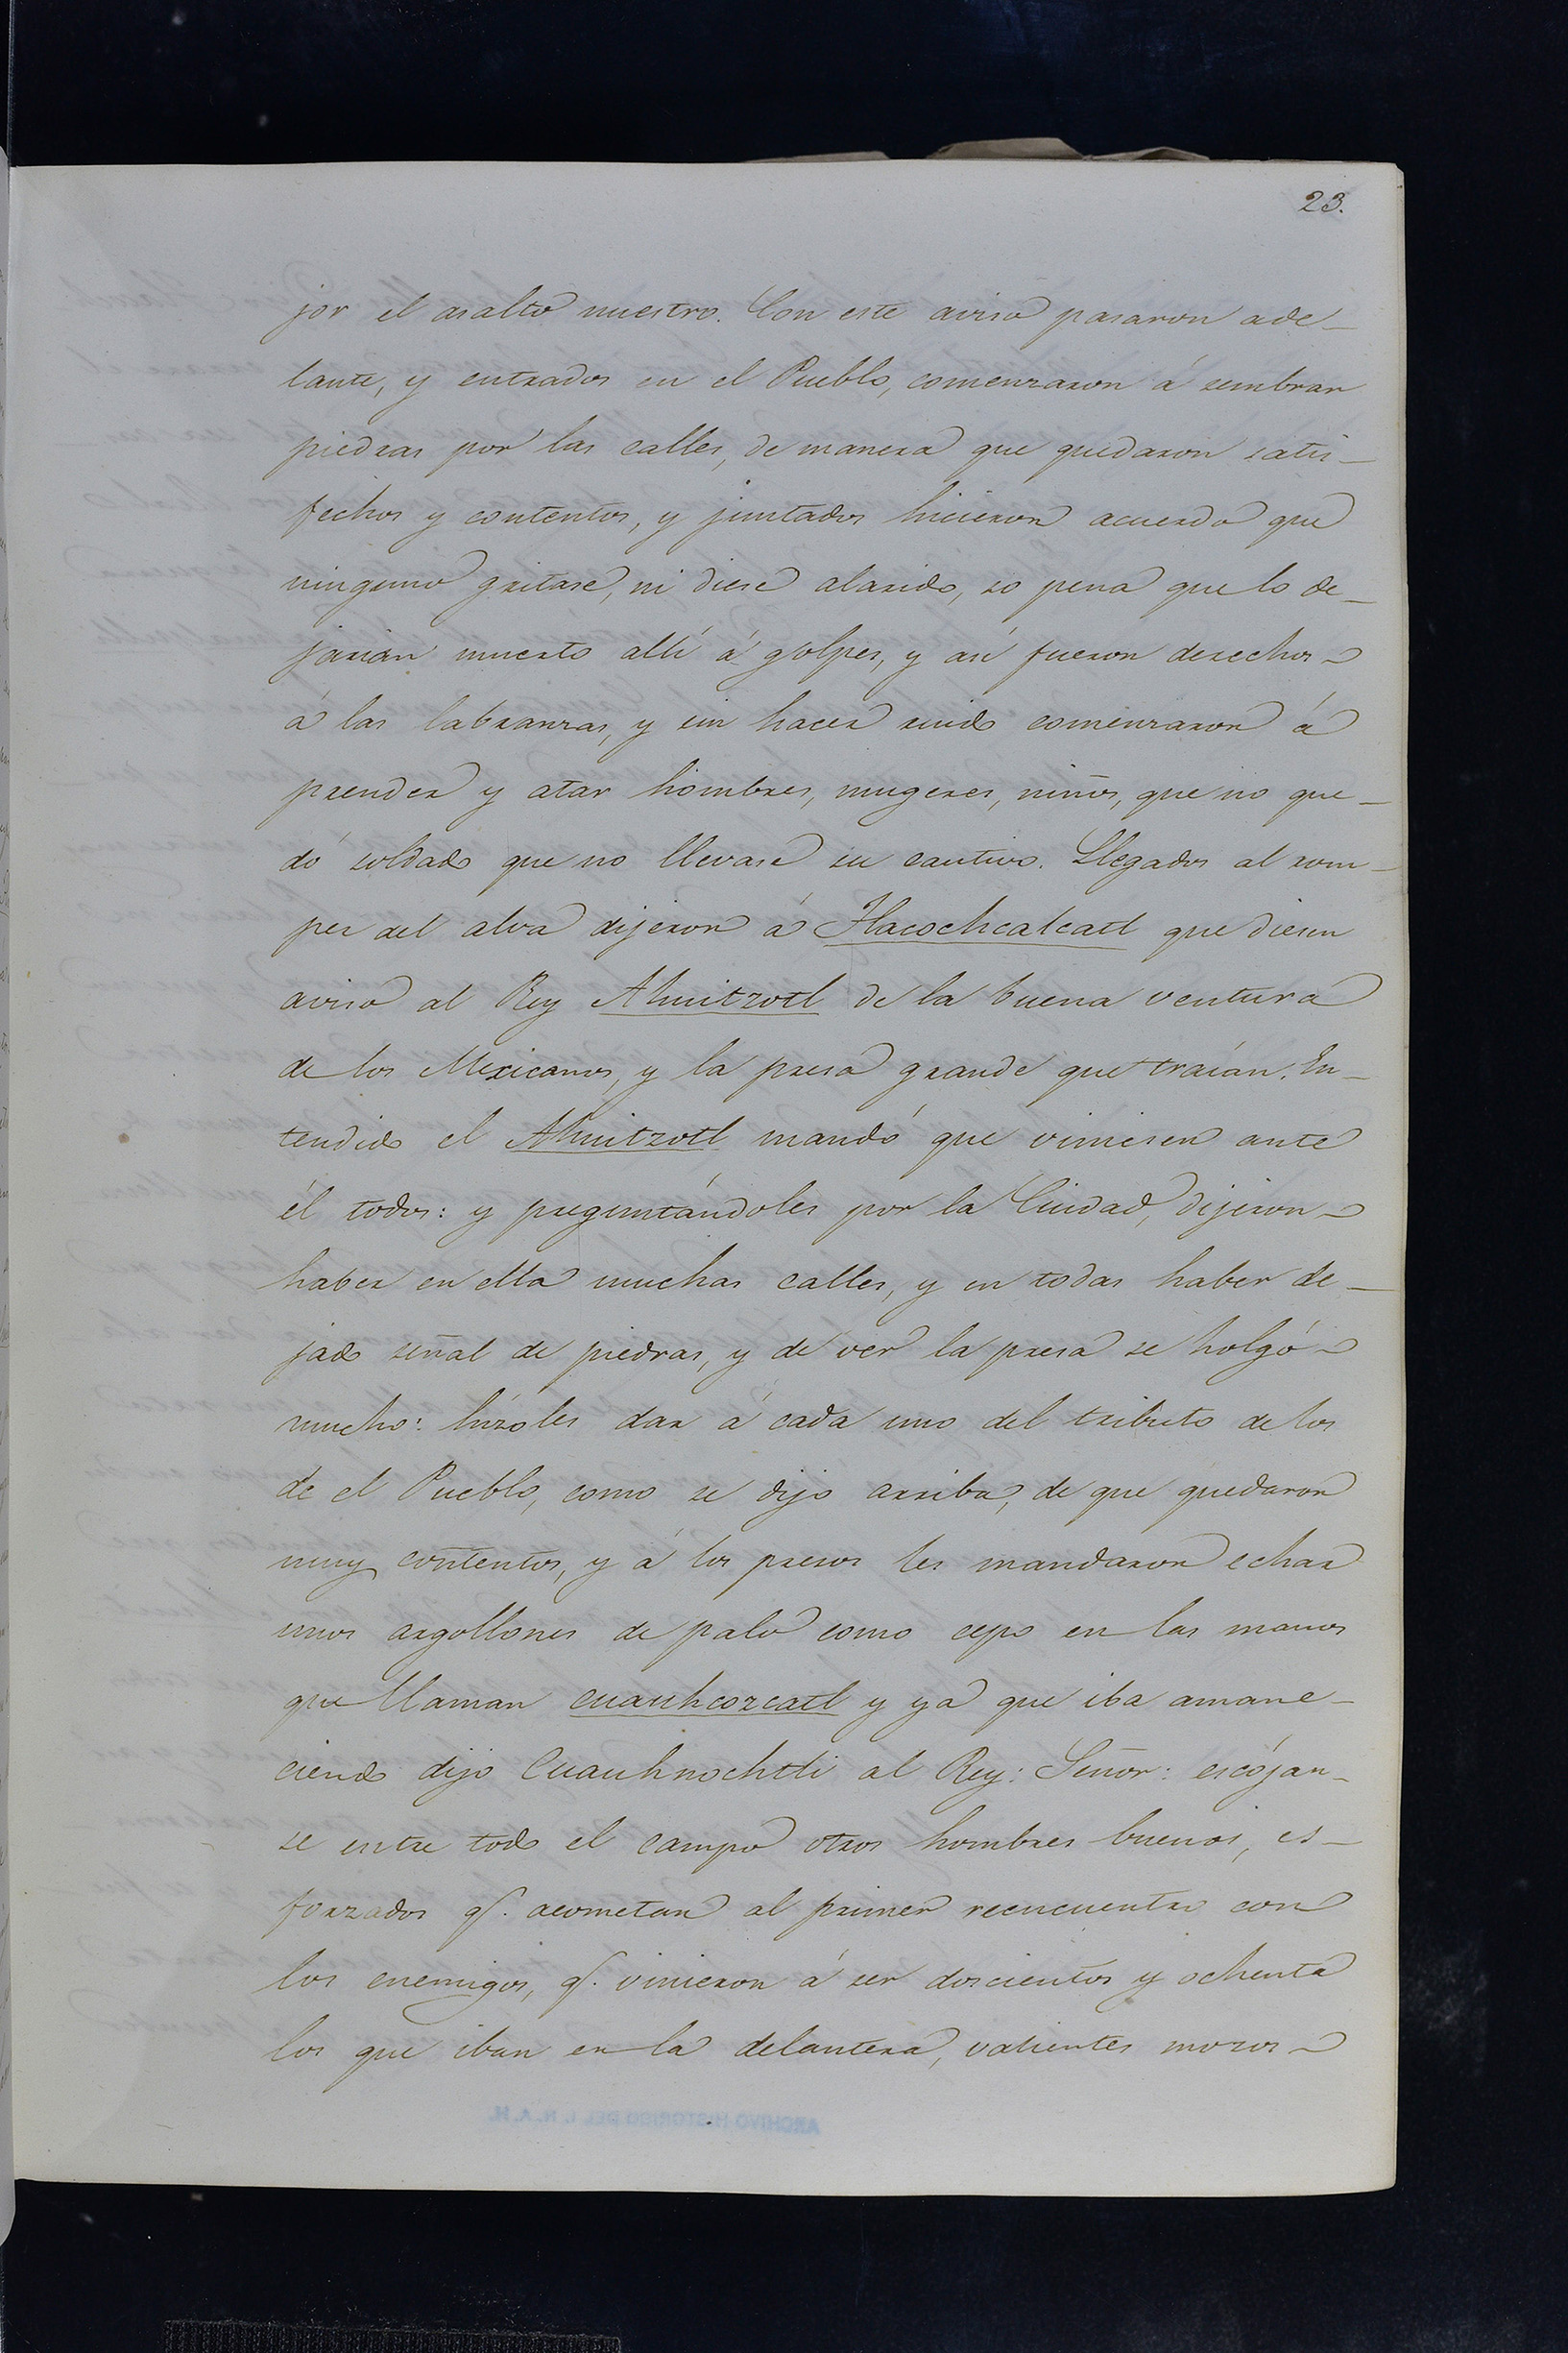 23.
jor el asalto nuestro. Con este aviso pasaron ade-
lante, y entrados en el Pueblo, comenzaron á sembrar
piedras por las calles, de manera que quedaron satis-
fechos y contentos, y juntados hicieron acuerdo que
ninguno gritase, ni diese alarido, so pena que lo de-
jarian muerto allí á golpes, y así fueron derechos
á las labranzas, y sin hacer ruido comenzaron á
prender y atar hombres, mugeres, niños, que no que-
dó soldado que no llevase su cautivo. Llegados al rom-
per del alva dijeron á Tlacochcalcatl que diesen
aviso al Rey Ahuitzotl de la buena ventura
de los Mexicanos, y la presa grande que traían. En-
tendido el Ahuitzotl mandó que viniesen ante
él todos: y preguntándoles por la Ciudad, dijeron
haber en ella muchas calles, y en todas haber de-
jado señal de piedras, y de ver la presa se holgó
mucho: hízoles dar á cada uno del tributo de los
de el Pueblo, como se dijo arriba, de que quedaron
muy contentos, y á los presos les mandaron echar
unos argollones de palo como cepo en las manos
que llaman cuauhcozcatl y ya que iba amane-
ciendo dijo Cuauhnochtli al Rey: Señor: escójan-
se entre todo el campo otros hombres buenos, es-
forzados q. acometan al primer recuentro con
los enemigos, q. vinieron á ser doscientos y ochenta
los que iban en la delantera, valientes mozos
ARCHIVO HISTORICO DEL I. N. A. H.